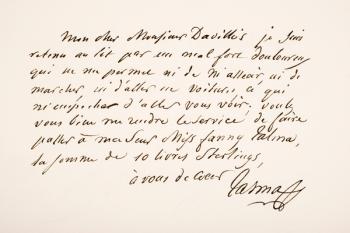 Mon cher Monsieur Davillis je suis
retenu au lit par un mal fort douloureux
qui ne me permet ni de m'asseoir, ni de
marcher ni d'aller en voiture, ce qui
m'empêcher d'aller vous voir; voulez
vous bien me rendre le service de faire
passer à ma sœur Miss fanny Talma,
la somme de 10 livres Sterlings,
à vous de cœur Talma